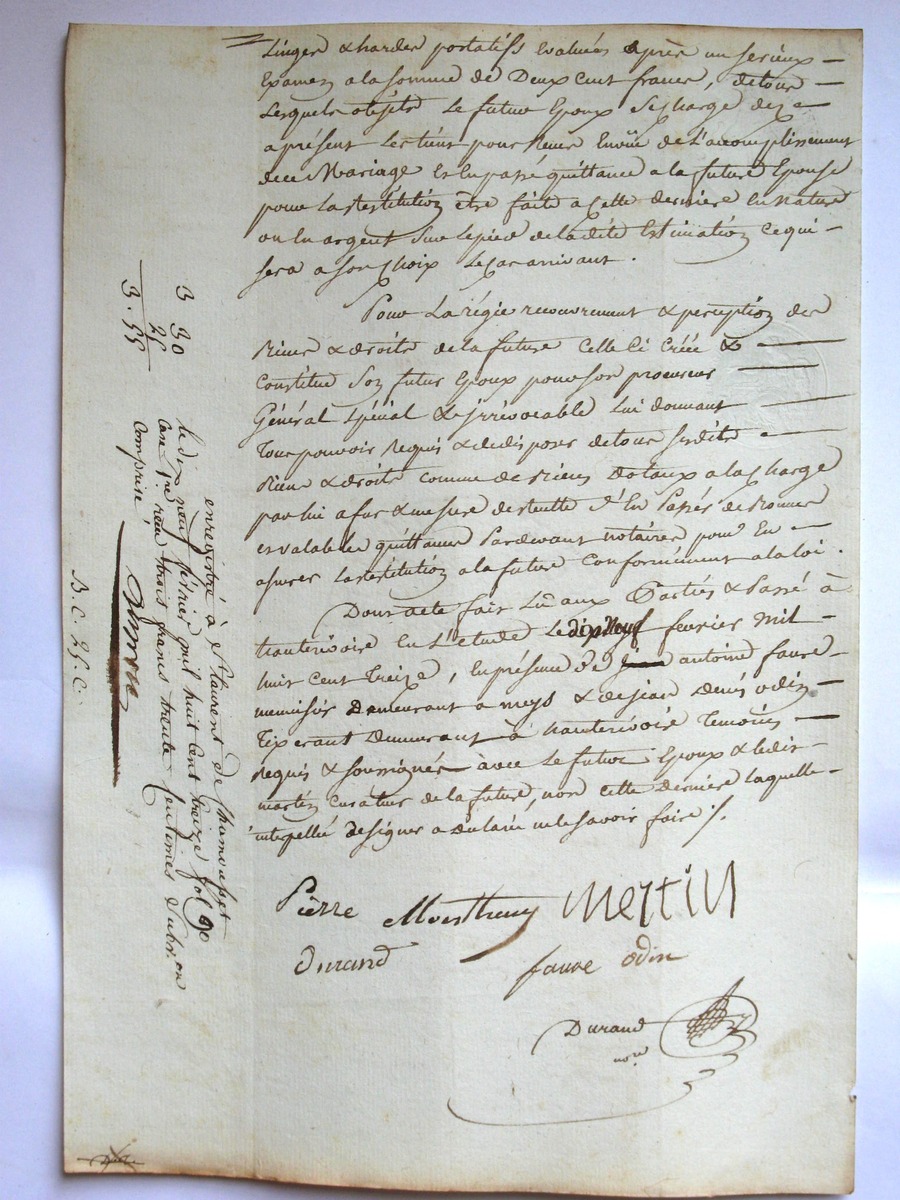 Linges & hardes portatifs Evalués après un serieux
Examen a la somme de Deux cent francs, de tous
Lesquels objets Le futur Epoux Se charge dez
a présent Les tient pour Reçus En vüe de L'accomplissement
de ce Mariage Et En passe quittance a la future Epouse
pour La restitution être faite a Cette derniere En Nature
ou En argent Sur Le pied de la dite Estimation Ce qui
sera a Son Choix Le Cas arrivant .
Pour La régie recouvrement & perception des
Biens & droits de la future Celle Ci Créée &
Constitue Son futur Epoux pour Son procureur
Général spécial & irrévocable Lui donnant
Tous pouvoirs Requis & de disposer de tous Susdits
Biens & droits comme de Biens Dotaux a la Charge
par lui a fur & mesure de d'En Passer de Bonnes
et valables quittances Pardevant notaires pour En
assurer La restitution a la future Conformément a la loi .
Dont acte fait Lû aux Parties & Passé à
hauterivoire En L'etude Le dix Neuf fevrier Mil
huit Cent Treize, En présence de antoine faure
menuisier Demeurant a meys & de Denis odin
Tixerant Demeurant à hauterivoire Temoins
Requis & soussignés avec Le futur Epoux & le dit
martin Curateur de la future, non Cette derniere laquelle
interpellée de signer a Déclaré ne le savoir faire /.
Pierre Mertin
Durand faure odin
Durand
nore
enregistré à St laurent de Chamousset
le dix neuf fevrier mil huit cent treize fol 90
Case 1re reçu trois francs trente centimes subv.on
comprise
3 30
25
3 . 55
B. C. 25 C.